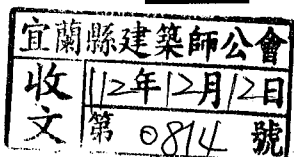 宜蘭縣建築師公會
收文
112年12月12日
第 0814 號